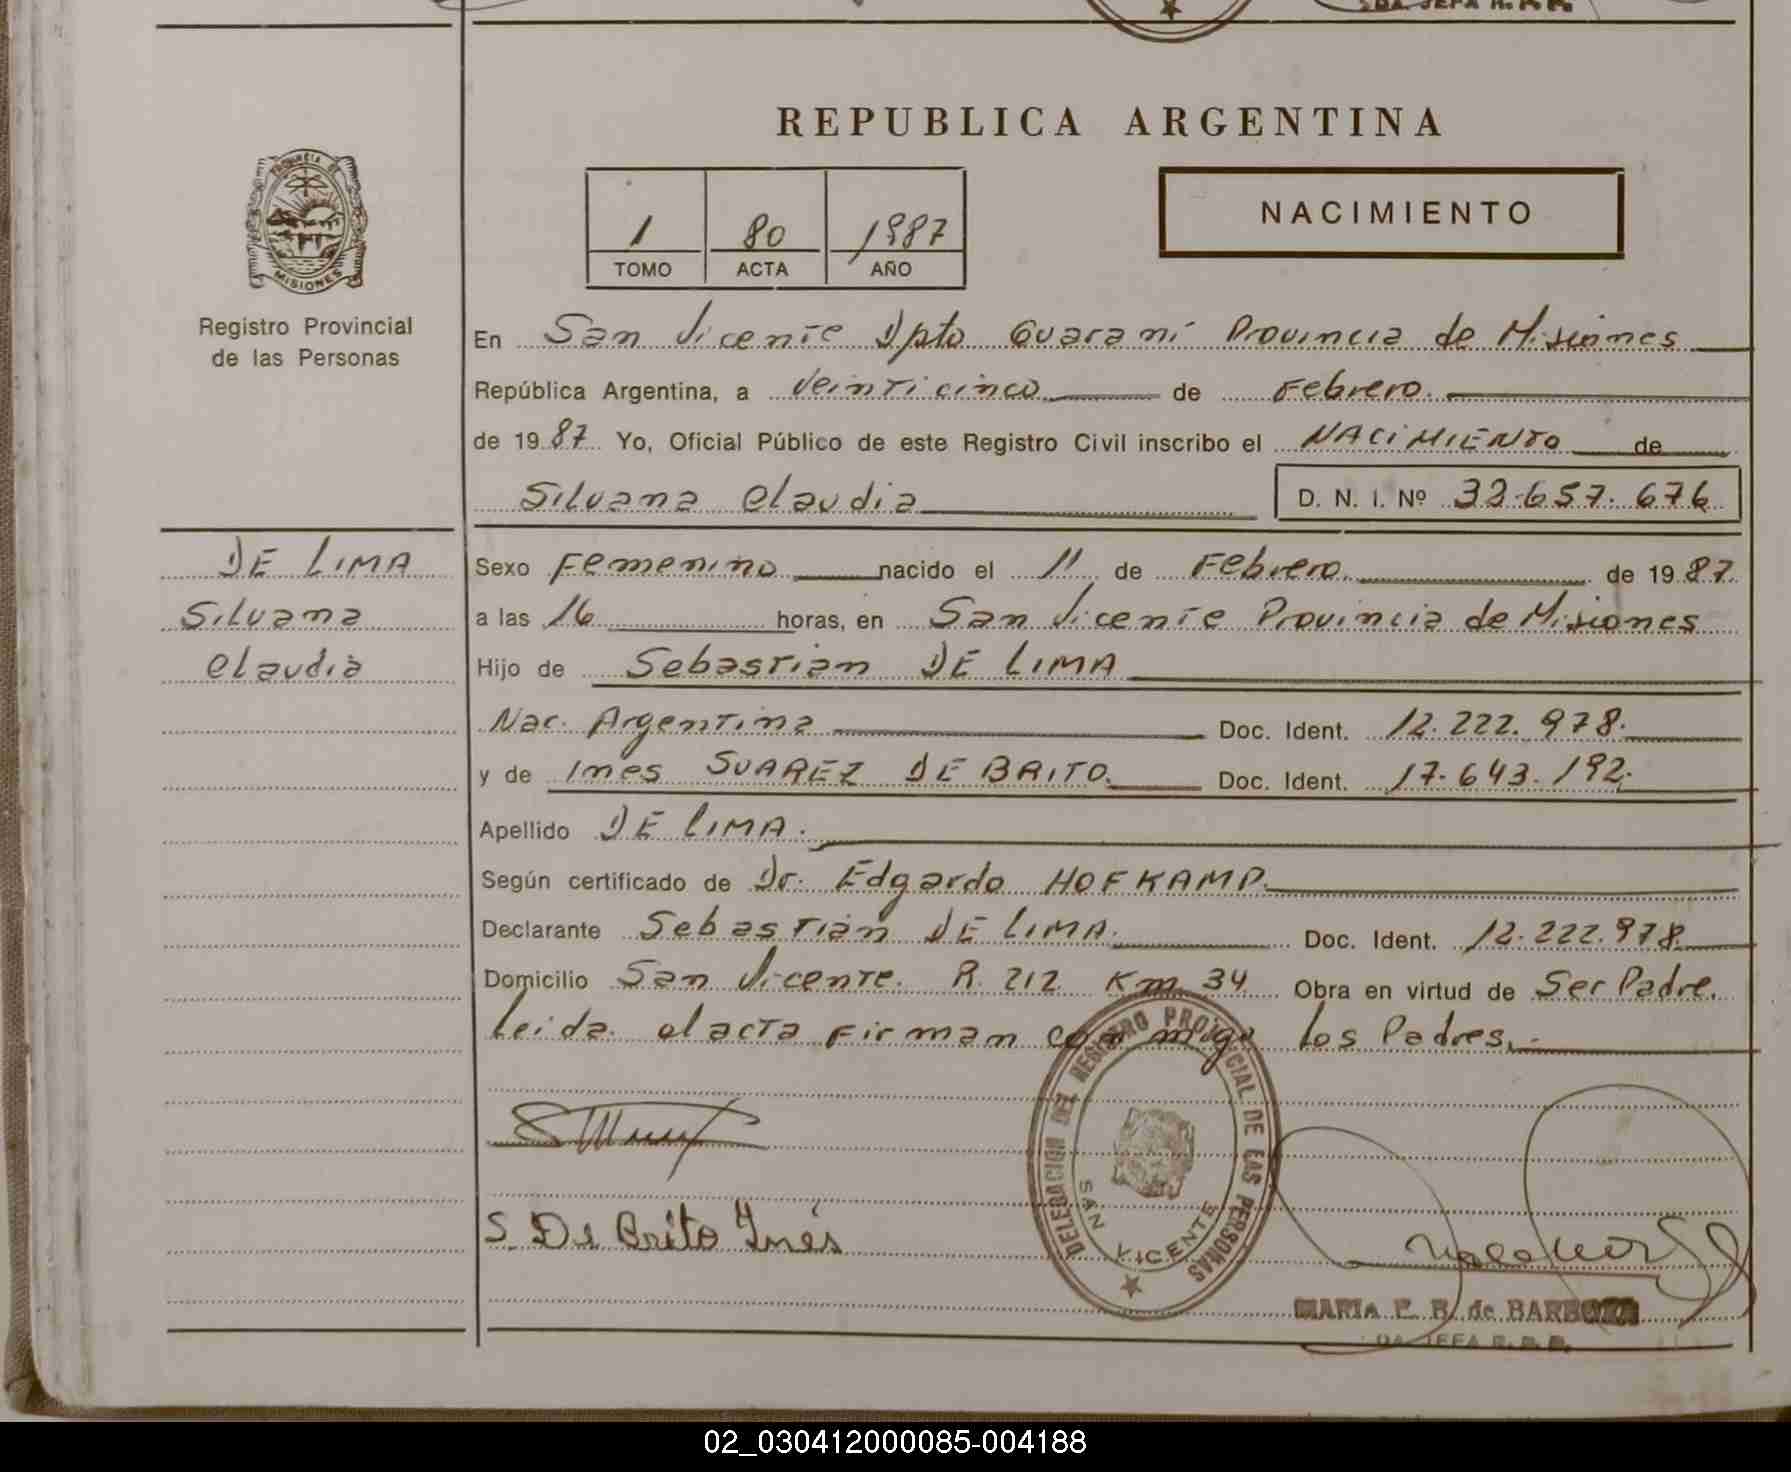 REPUBLICA ARGENTINA
PROVINCIA DE
MISIONES
Registro Provincial
de las Personas
1 80 1987
TOMO ACTA AÑO
NACIMIENTO
En San Vicente Dpto Guaraní Provincia de Misiones
República Argentina, a Veinticinco de Febrero.
de 1987 Yo, Oficial Público de este Registro Civil inscribo el NACIMIENTO de
Silvana Claudia D. N. I. Nº 32.657.676
DE LIMA
Silvana
Claudia
Sexo Femenino nacido el 11 de Febrero. de 1987.
a las 16 horas, en San Vicente Provincia de Misiones
Hijo de Sebastián DE LIMA
Nac. Argentina Doc. Ident. 12.222.978.
y de Ines SUAREZ DE BRITO. Doc. Ident. 17.643.192.
Apellido DE LIMA.
Según certificado de Dr. Edgardo HOFKAMP.
Declarante Sebastián DE LIMA. Doc. Ident. 12.222.978.
Domicilio San Vicente. R. 212 Km 34 Obra en virtud de Ser Padre.
Leida el acta Firman con migo los Padres.
DELEGACION DEL REGISTRO PROVINCIAL DE LAS PERSONAS
SAN VICENTE
S. De Brito Inés
MARIA E. B. de BARBOZA
DA. JEFA R. P. P.
02_030412000085-004188